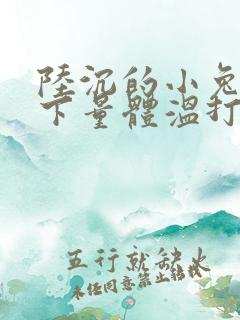 陸沉的小兔
下量體溫打
五行就缺火
未經同意禁止轉載